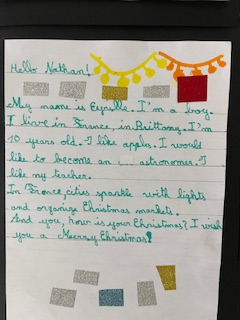 Hello Nathan!
My name is Eyrille. I'm a boy.
I live in France, in Brittany. I'm
10 years old. I like apples. I would
like to become an astronomer. I
like my teacher.
In France, cities sparkle with lights
and organize Christmas markets.
And you, how is your Christmas? I wish
you a Merry Christmas!